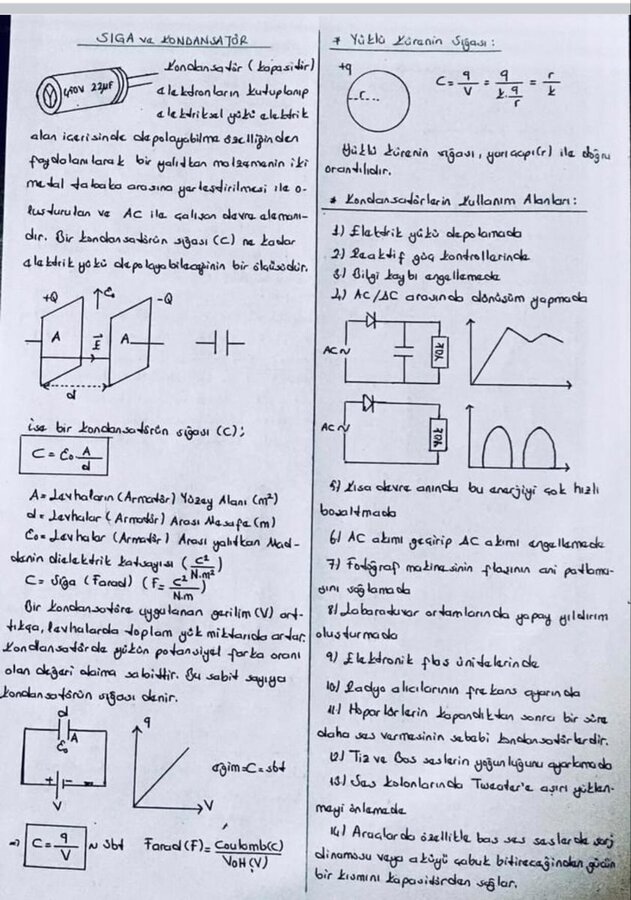 SIGA ve KONDANSATÖR
450V 22µF
Kondansatör (kapasitör)
elektronların kutuplanıp
elektriksel yükü elektrik
alan içerisinde depolayabilme özelliğinden
faydalanılarak bir yalıtkan malzemenin iki
metal tabaka arasına yerleştirilmesi ile o-
luşturulan ve AC ile çalışan devre elemanı-
dır. Bir kondansatörün sığası (C) ne kadar
elektrik yükü depolayabileceğinin bir ölçüsüdür.
+Q ε₀ -Q
A E A
d
ise bir kondansatörün sığası (C);
C = ε₀ A/d
A = Levhaların (Armatör) Yüzey Alanı (m²)
d = Levhalar (Armatör) Arası Mesafe (m)
ε₀ = Levhalar (Armatör) Arası yalıtkan Mad-
denin dielektrik katsayısı (C²/N.m²)
C = Sığa (Farad) (F = C²/N.m)
Bir kondansatöre uygulanan gerilim (V) art-
tıkça, levhalarda toplam yük miktarıda artar.
Kondansatörde yükün potansiyel farka oranı
olan değeri daima sabittir. Bu sabit sayıya
kondansatörün sığası denir.
d
A
ε₀
+ -
V
q
eğim=C=sbt
V
⇒ C = q/V ~ sbt Farad (F) = Coulomb(C)/Volt (V)
* Yüklü Kürenin Sığası:
+q
r
C = q/V = q/(k.q/r) = r/k
Yüklü kürenin sığası, yarıçapı(r) ile doğru
orantılıdır.
* Kondansatörlerin Kullanım Alanları:
1) Elektrik yükü depolamada
2) Reaktif güç kontrollerinde
3) Bilgi kaybı engellemede
4) AC/DC arasında dönüşüm yapmada
AC~ YÜK
AC~ YÜK
5) Kısa devre anında bu enerjiyi çok hızlı
boşaltmada
6) AC akımı geçirip DC akımı engellemede
7) Fotoğraf makinesinin flaşının ani patlama-
sını sağlamada
8) Labaratuvar ortamlarında yapay yıldırım
oluşturmada
9) Elektronik flaş ünitelerinde
10) Radyo alıcılarının frekans ayarında
11) Hoparlörlerin kapandıktan sonra bir süre
daha ses vermesinin sebebi kondansatörlerdir.
12) Tiz ve Bas seslerin yoğunluğunu ayarlamada
13) Ses kolonlarında Tweeter'e aşırı yüklen-
meyi önlemede
14) Araçlarda özellikle bas ses seslerde şarj
dinamosu veya aküyü çabuk bitireceğinden gücün
bir kısmını kapasitörden sağlar.